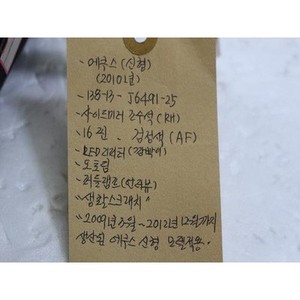 - 에쿠스 (신형)
(2010년)
- 138-13- J6491-25
- 사이드미러 조수석 (RH)
- 16핀 - 검정색 (AF)
- LED리피터 (깜빡이)
- 오토립
- 퍼들램프 (산타뷰)
- "생활스크래치"
- 2009년 ~ 2012년 12월까지
생산된 에쿠스 신형 모델적용.